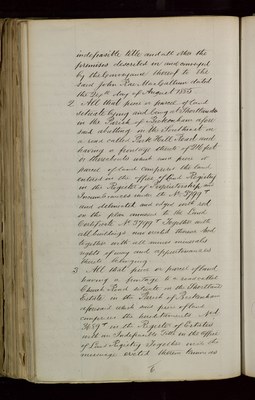 indefeasible title and all other the
premises described in and assured
by the Conveyance thereof to the
said John Rae MacGillum dated
the day of August 1885
2. All that piece or parcel of land
situate lying and being at Shortlands
in the Parish of Beckenham afore-
said abutting on the South west on
a road called Park Hill Road and
having a frontage thereto of feet
or thereabouts which said piece or
parcel of land comprises the land
entered in the office of Land Registry
in the Register of Proprietorship and
Incumbrances under the No. 37977
and delineated and edged with red
on the plan annexed to the Land
Certificate No. 37977 Together with
all buildings now erected thereon And
together with all mines minerals
rights of way and appurtenances
thereto belonging
3. All that piece or parcel of land
having a frontage to a road called
Church Road situate on the Shortlands
Estate in the Parish of Beckenham
aforesaid which said piece of land
comprises the hereditaments No.
in the Register of Estates
with an Indefeasible Title in the Office
of Land Registry Together with the
messuage erected thereon known as